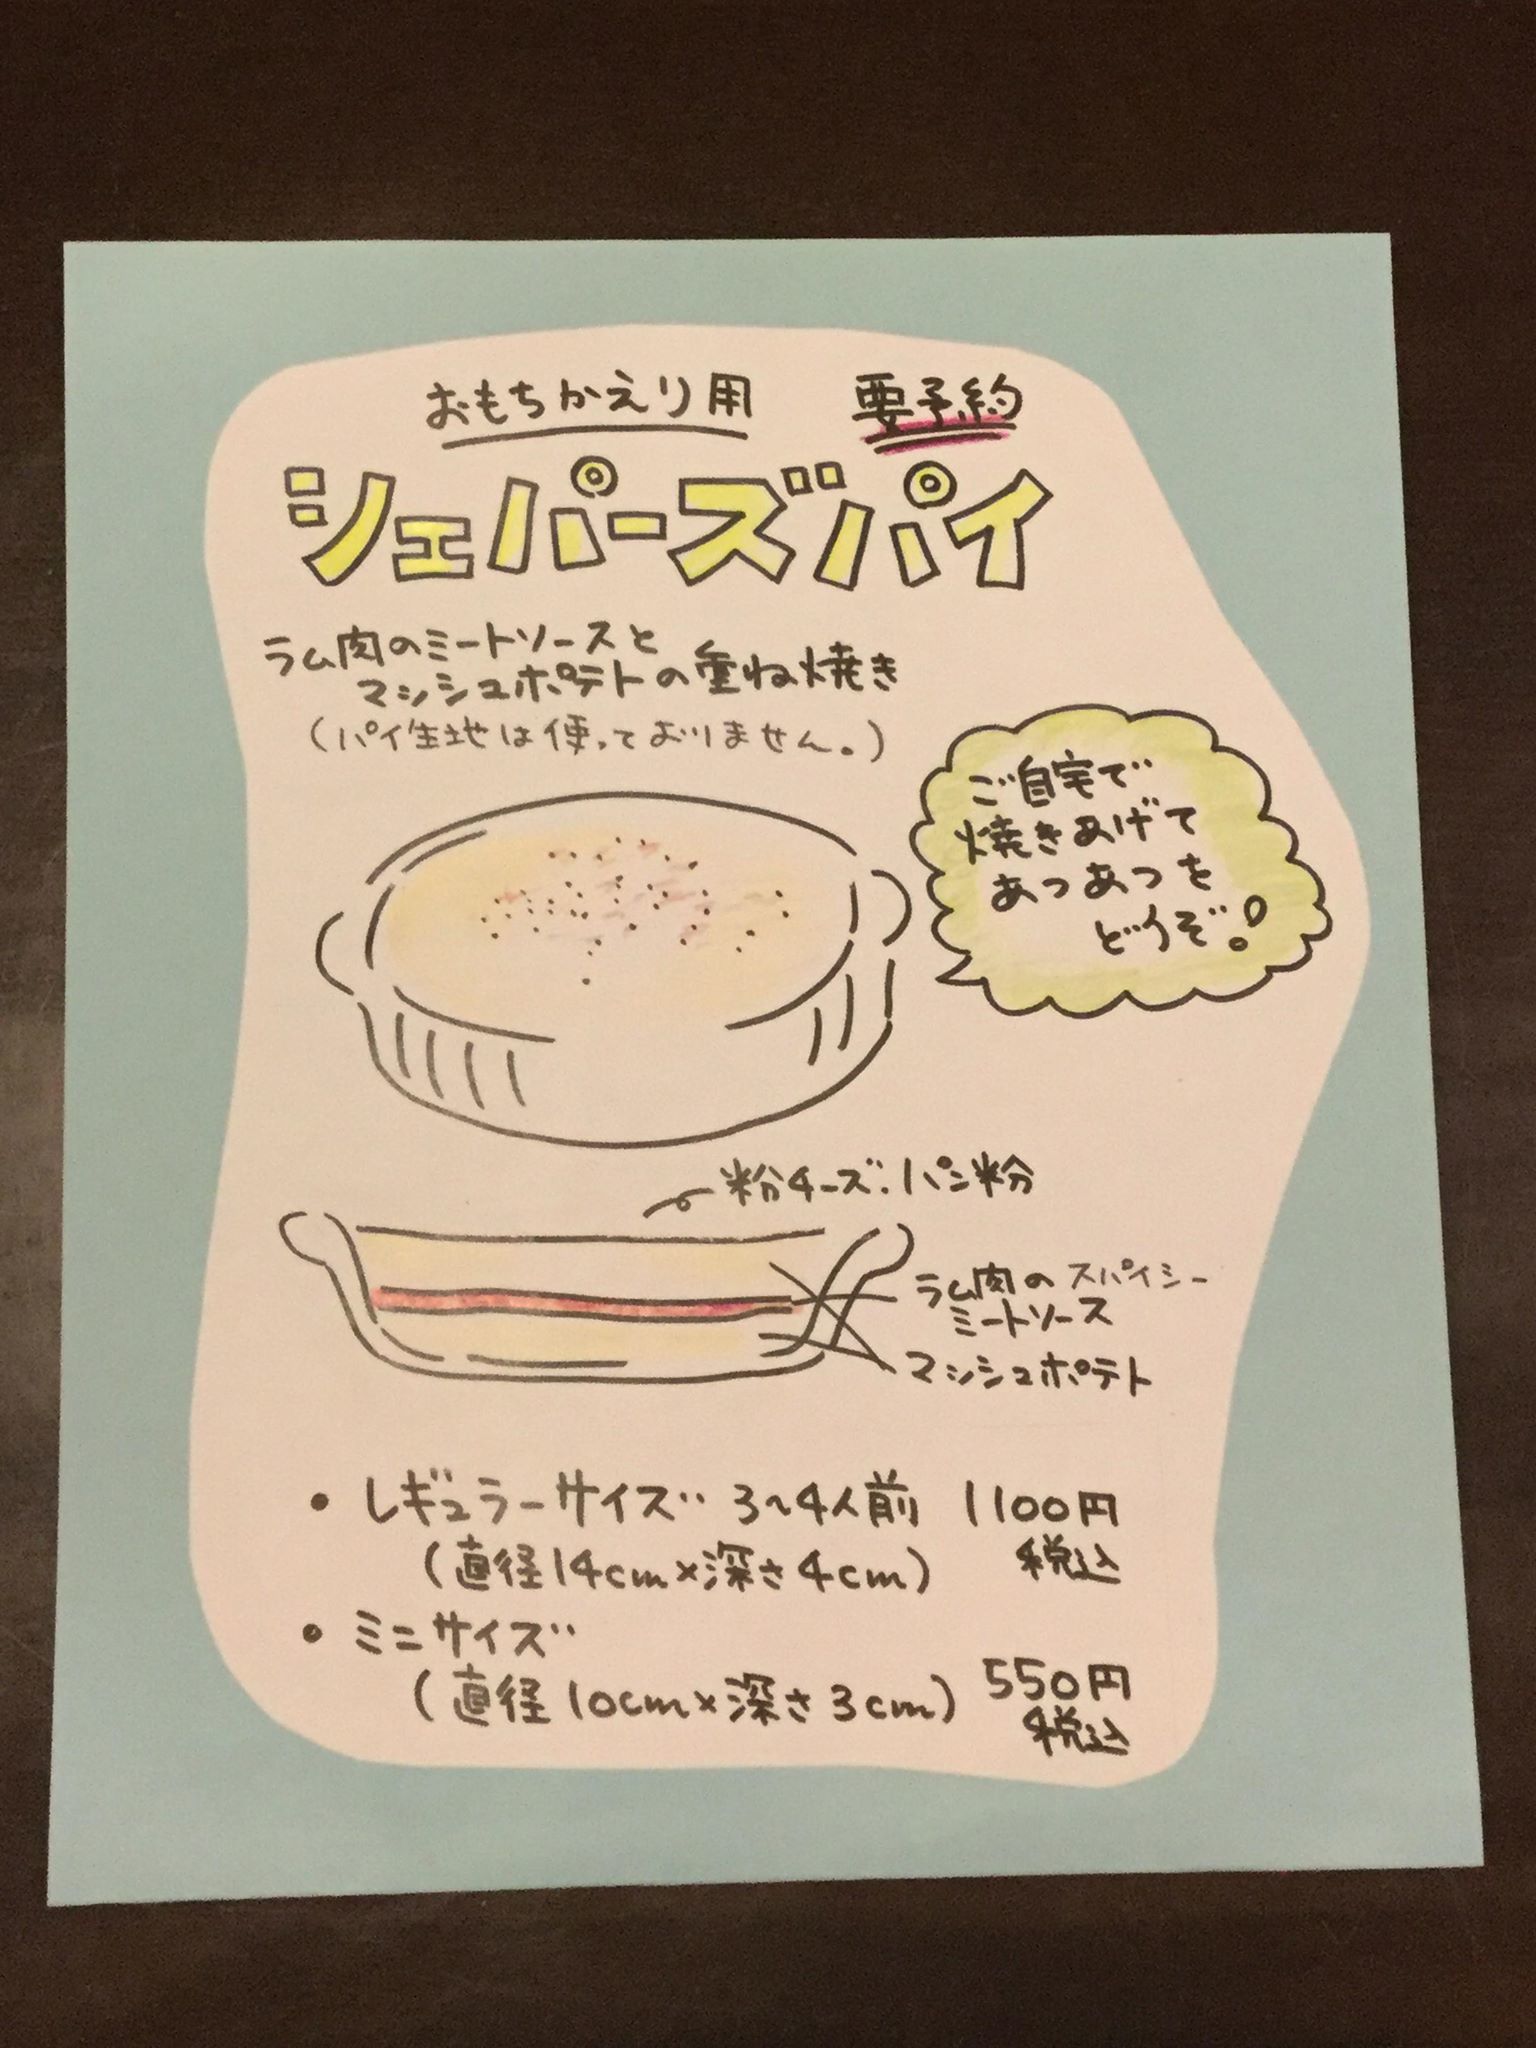 おもちかえり用 要予約
シェパーズパイ
ラム肉のミートソースと
マッシュポテトの重ね焼き
(パイ生地は使っておりません。)
ご自宅で
焼きあげて
あつあつを
どうぞ!
粉チーズ:パン粉
ラム肉のスパイシー
ミートソース
マッシュポテト
• レギュラーサイズ 3~4人前 1100円
(直径14cm×深さ4cm) 税込
• ミニサイズ
(直径10cm×深さ3cm) 550円
税込